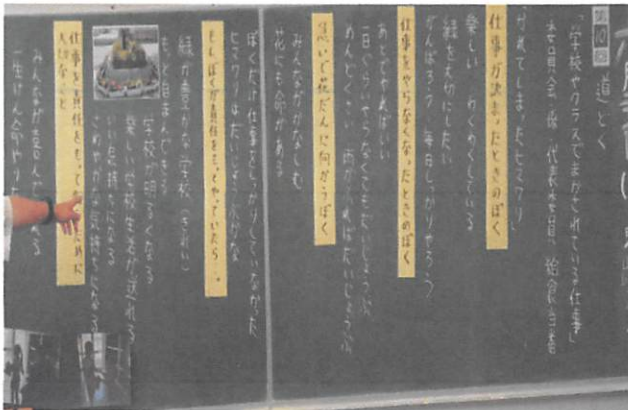 第10回 道とく
「学校やクラスでまかされている仕事」
委員会 係 代表委員 給食当番
「かれてしまったヒマワリ」
仕事が決まったときのぼく
楽しい わくわくしている
緑を大切にしたい
がんばろう 毎日しっかりやろう
仕事をやらなくなったときのぼく
あとでやればいい
一日ぐらいやらなくてもだいじょうぶ
めんどくさい 雨がふればだいじょうぶ
急いで花だんに向かうぼく
みんながかなしむ
花にも命がある
ぼくだけ仕事をしっかりしていなかった
ヒマワリはだいじょうぶかな
もしぼくが責任をもってやっていたら…。
緑が豊かな学校 (きれい)
もっと自まんできる
学校が明るくなる
楽しい学校生活が送れる
いい気持ちになる
さわやかな気持ちになる
仕事を責任をもって ために
大切なこと
みんなが喜んで れる
一生けん命やり